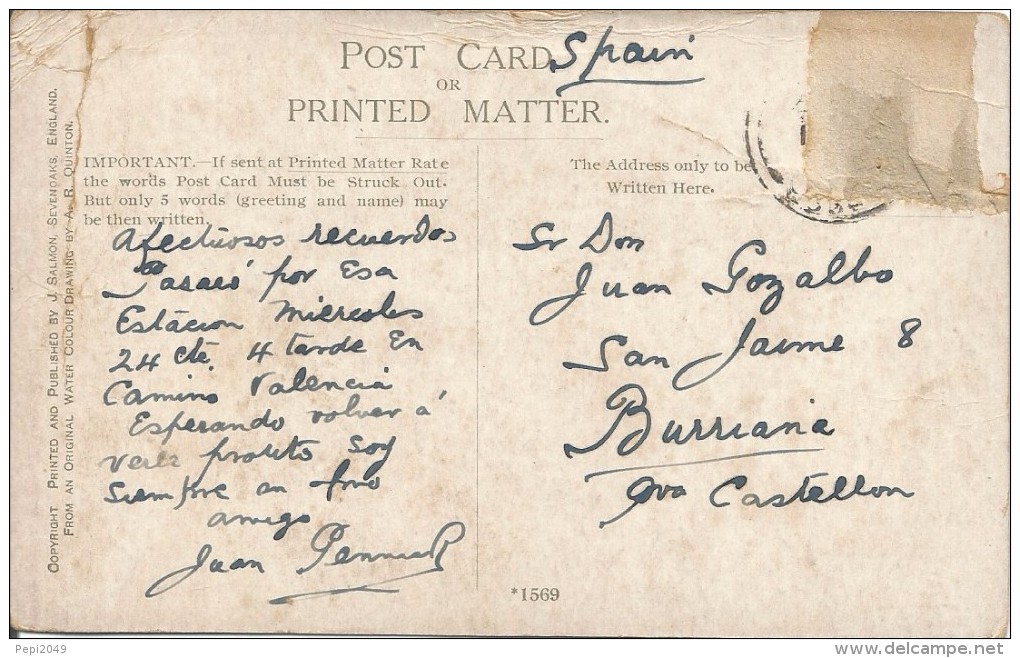 POST CARD Spain
OR
PRINTED MATTER.
IMPORTANT.—If sent at Printed Matter Rate
the words Post Card Must be Struck Out.
But only 5 words (greeting and name) may
be then written.
The Address only to be
Written Here.
Afectuosos recuerdos
Pasaré por Esa
Estacion Miercoles
24 cte 4 tarde En
Camino Valencia
Esperando volver á
verle pronto Soy
Siempre su
amigo
Juan
Sr Don
Juan Gozalbo
San Jaime 8
Burriana
Castellon
*1569
COPYRIGHT PRINTED AND PUBLISHED BY J. SALMON, SEVENOAKS, ENGLAND.
FROM AN ORIGINAL WATER COLOUR DRAWING BY A. R. QUINTON.
Pepi2049
www.delcampe.net